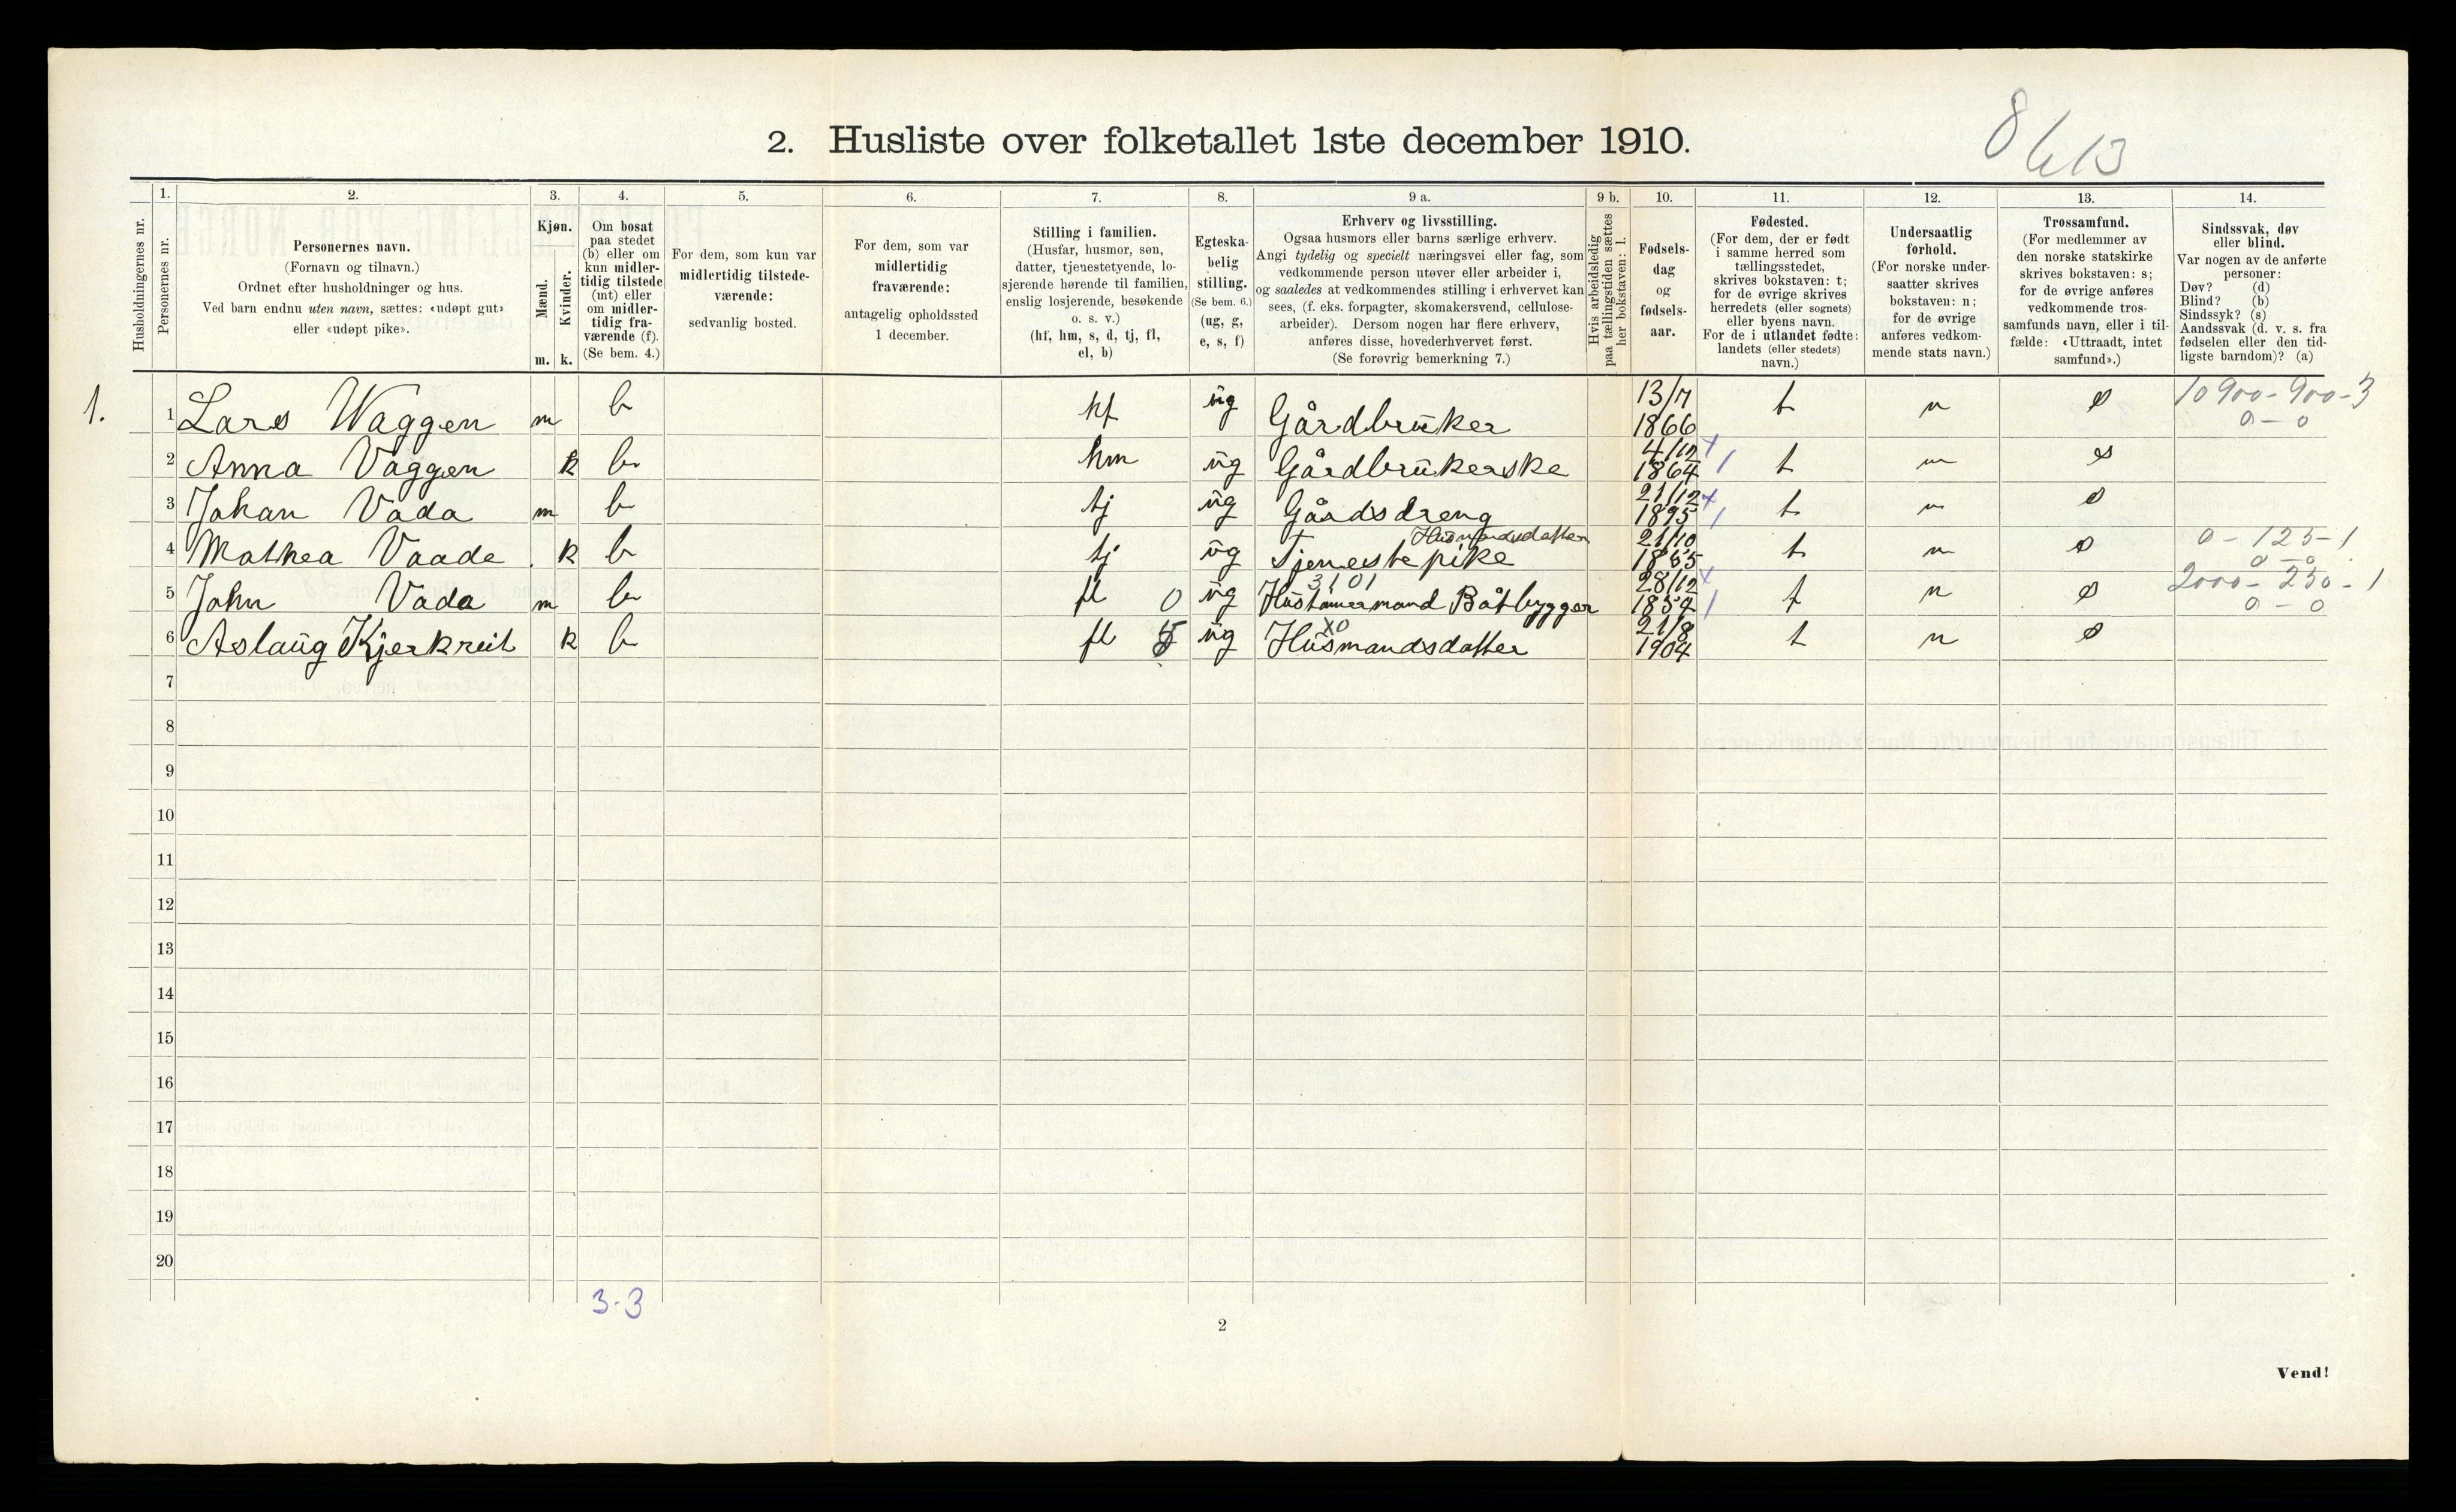 8613
2. Husliste over folketallet 1ste december 1910.
Husholdningernes nr.
1.
Personernes nr.
2.
Personernes navn.
(Fornavn og tilnavn.)
Ordnet efter husholdninger og hus.
Ved barn endnu uten navn, sættes: «udøpt gut»
eller «udøpt pike».
3.
Kjøn.
Mænd.
Kvinder.
m. k.
4.
Om bosat
paa stedet
(b) eller om
kun midler-
tidig tilstede
(mt) eller
om midler-
tidig fra-
værende (f).
(Se bem. 4.)
5.
For dem, som kun var
midlertidig tilstede-
værende:
sedvanlig bosted.
6.
For dem, som var
midlertidig
fraværende:
antagelig opholdssted
1 december.
7.
Stilling i familien.
(Husfar, husmor, søn,
datter, tjenestetyende, lo-
sjerende hørende til familien,
enslig losjerende, besøkende
o. s. v.)
(hf, hm, s, d, tj, fl,
el, b)
8.
Egteska-
belig
stilling.
(Se bem. 6.)
(ug, g,
e, s, f)
9 a.
Erhverv og livsstilling.
Ogsaa husmors eller barns særlige erhverv.
Angi tydelig og specielt næringsvei eller fag, som
vedkommende person utøver eller arbeider i,
og saaledes at vedkommendes stilling i erhvervet kan
sees, (f. eks. forpagter, skomakersvend, cellulose-
arbeider). Dersom nogen har flere erhverv,
anføres disse, hovederhvervet først.
(Se forøvrig bemerkning 7.)
9 b.
Hvis arbeidsledig
paa tællingstiden sættes
her bokstaven: l.
10.
Fødsels-
dag
og
fødsels-
aar.
11.
Fødested.
(For dem, der er født
i samme herred som
tællingsstedet,
skrives bokstaven: t;
for de øvrige skrives
herredets (eller sognets)
eller byens navn.
For de i utlandet fødte:
landets (eller stedets)
navn.)
12.
Undersaatlig
forhold.
(For norske under-
saatter skrives
bokstaven: n;
for de øvrige
anføres vedkom-
mende stats navn.)
13.
Trossamfund.
(For medlemmer av
den norske statskirke
skrives bokstaven: s;
for de øvrige anføres
vedkommende tros-
samfunds navn, eller i til-
fælde: «Uttraadt, intet
samfund».)
14.
Sindssvak, døv
eller blind.
Var nogen av de anførte
personer:
Døv? (d)
Blind? (b)
Sindssyk? (s)
Aandssvak (d. v. s. fra
fødselen eller den tid-
ligste barndom)? (a)
1. 1 Lars Waggen m b hf ug Gårdbruker 13/7 1866 t n s 10900-900-3
0-0
2 Anna Vaggen k b hm ug Gårdbrukerske 4/12 1864 t n s
3 Johan Vada m b tj ug Gårdsdreng 21/12 1895 t n s
Husmandsdatter
4 Mathea Vaade k b tj ug Tjenestepike 21/10 1855 t n s 0-125-1
0-0
3101
5 John Vada m b fl 0 ug Båtbygger 28/12 t n s 2000-250-1
0-0
X0
6 Aslaug Kjerkreit k b fl ug Husmandsdatter 21/8 1904 t n s
7
8
9
10
11
12
13
14
15
16
17
18
19
20
3-3
2
Vend!